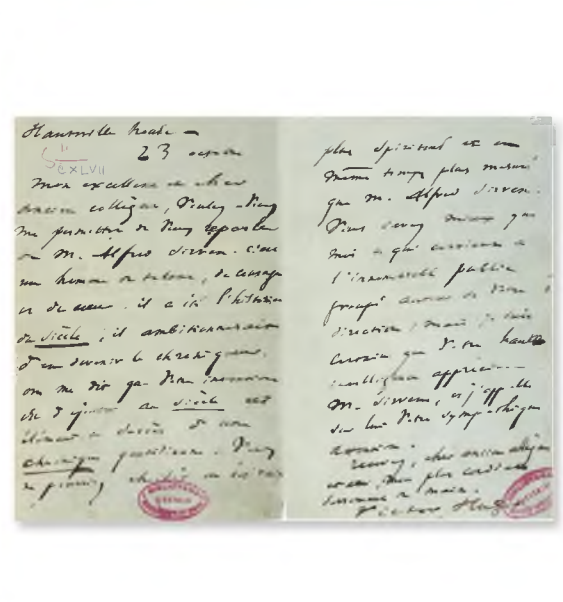 Hauteville house —
23 octobre
CXLVII
mon excellent et cher
ancien collègue, Voulez-vous
me permettre de vous reparler
de M. Alfred Sirven. c'est
un homme de talent, de courage
et de cœur. il a été l'historien
du siècle ; il ambitionnerait
d'en devenir le chroniqueur.
on me dit que votre intention
est d'ajouter au siècle cet
élément de succès d'une
chronique quotidienne. Vous
ne pourriez choisir un écrivain
plus spirituel et en
même temps plus mesuré
que M. Alfred Sirven.
Vous savez mieux que
moi ce qui convient à
l'immense public
groupé autour de votre
direction ; mais je suis
certain que votre haute
intelligence appréciera
M. Sirven, et j'appelle
sur lui votre sympathique
attention.
Recevez, cher ancien collègue
et ami, mon plus cordial
serrement de main.
Victor Hugo